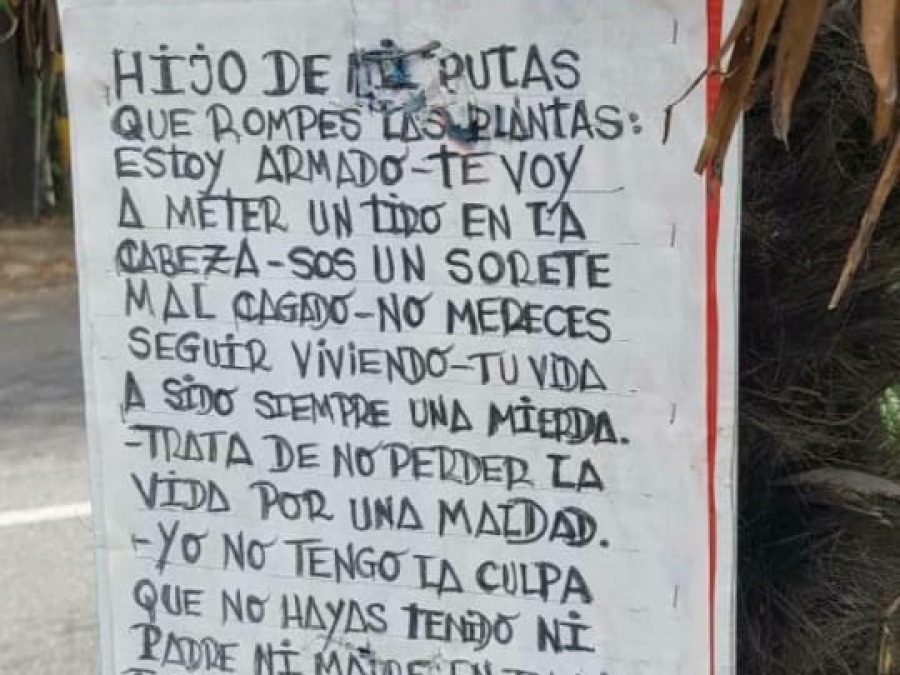 HIJO DE MIL PUTAS
QUE ROMPES LAS PLANTAS:
ESTOY ARMADO-TE VOY
A METER UN TIRO EN LA
CABEZA-SOS UN SORETE
MAL CAGADO-NO MERECES
SEGUIR VIVIENDO-TU VIDA
A SIDO SIEMPRE UNA MIERDA.
-TRATA DE NO PERDER LA
VIDA POR UNA MALDAD.
-YO NO TENGO LA CULPA
QUE NO HAYAS TENIDO NI
PADRE NI MADRE EN